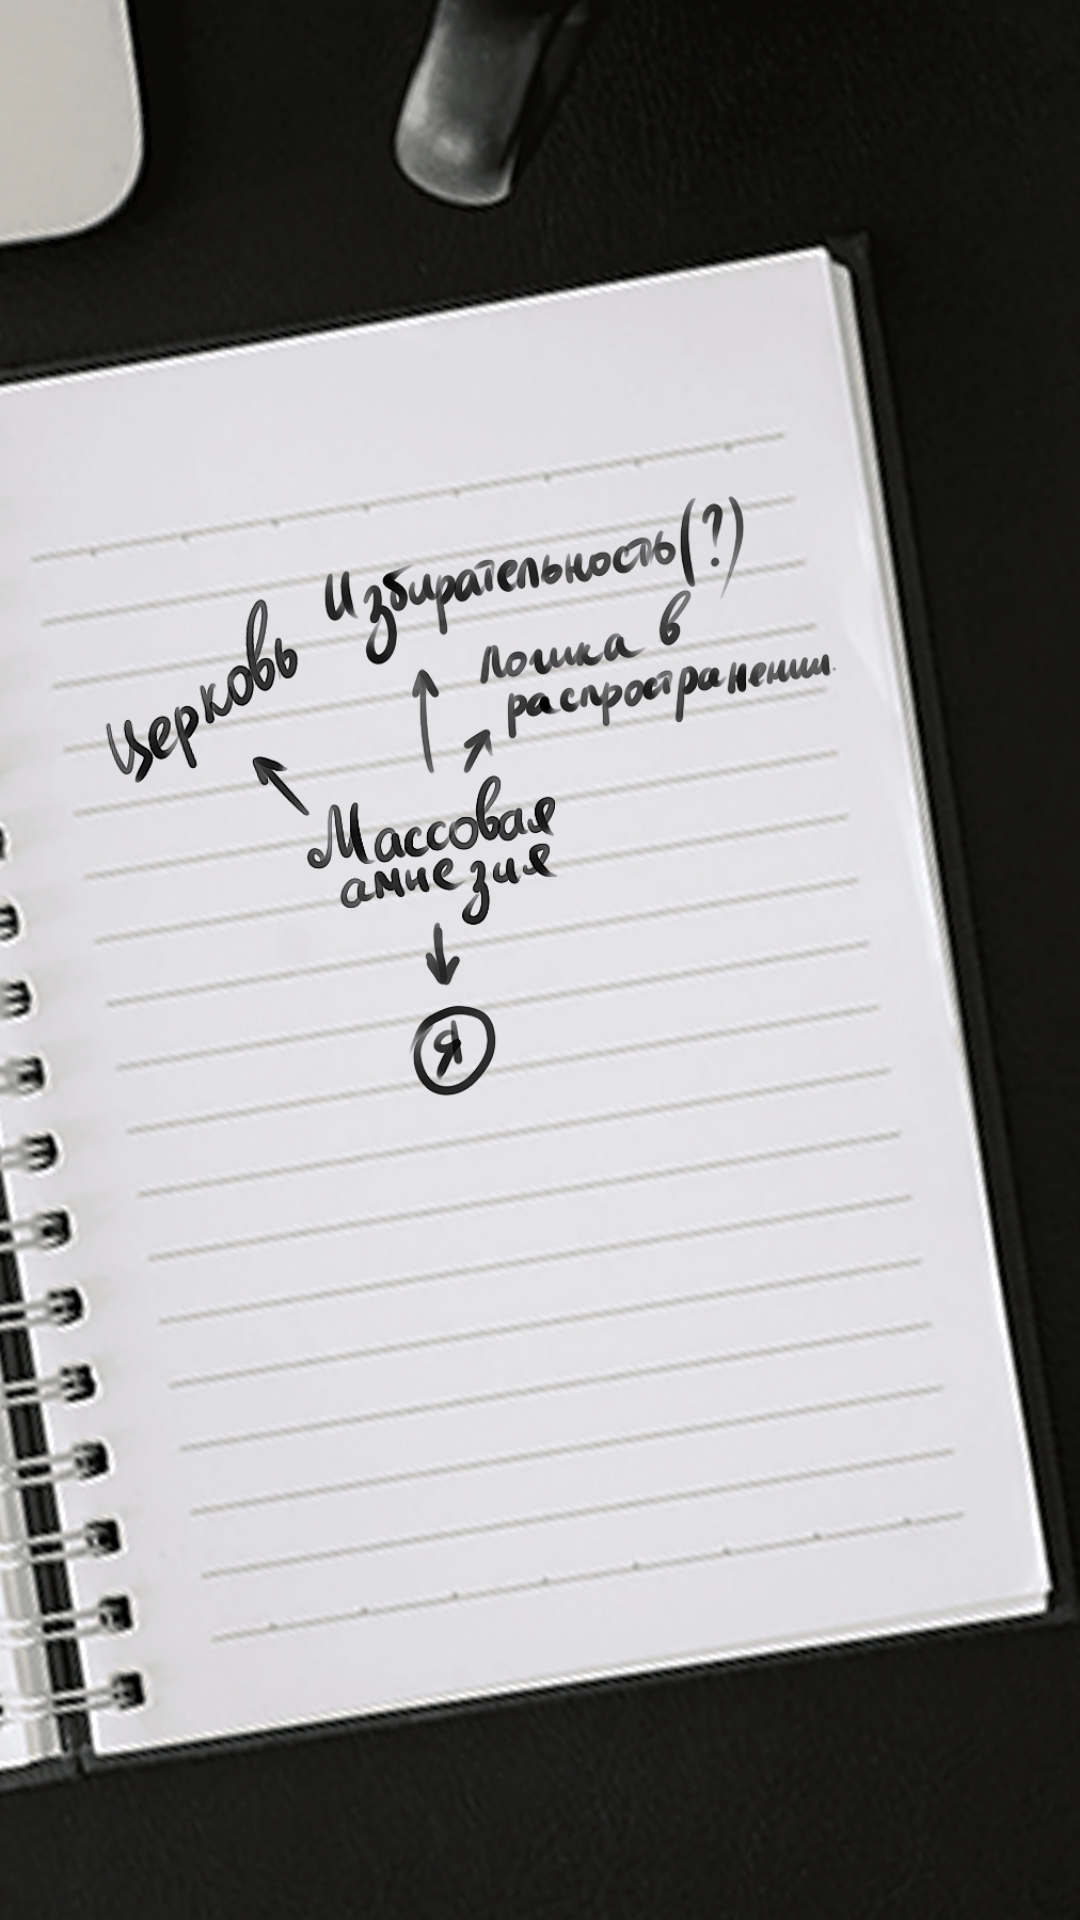 Избирательность(?)
Церковь
Логика в
распространении.
Массовая
амнезия
Я